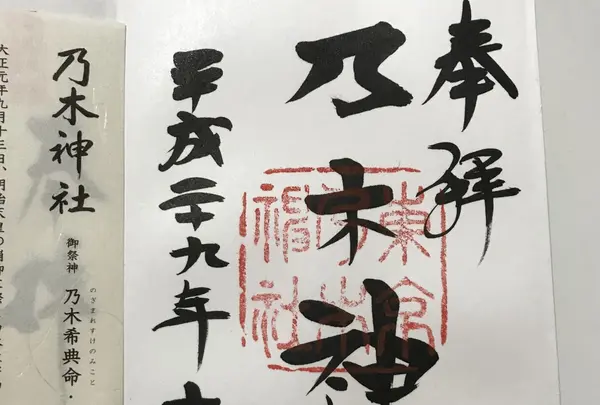 奉拝
乃木神
平成二十九年
乃木神社
御祭神 乃木希典命・
のぎまれすけのみこと
大正元年九月十三日、明治天皇の